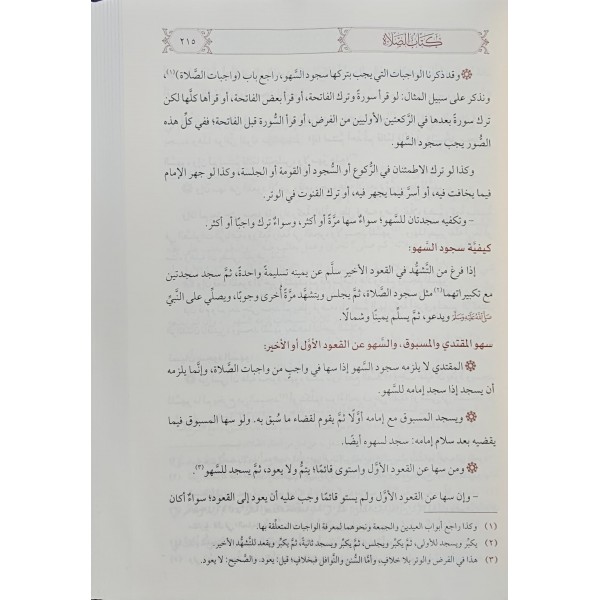 كتاب الصلاة
٢١٥
وقد ذكرنا الواجبات التي يجب بتركها سجود السهو، راجع باب (واجبات الصَّلاة)(١)،
ونذكر على سبيل المثال: لو قرأ سورةً وترك الفاتحة، أو قرأ بعض الفاتحة، أو قرأها كلَّها لكن
ترك سورةً بعدها في الرَّكعتين الأوليين من الفرض، أو قرأ السُّورة قبل الفاتحة؛ ففي كلِّ هذه
الصُّور يجب سجود السَّهو.
وكذا لو ترك الاطمئنان في الرُّكوع أو السُّجود أو القومة أو الجلسة، وكذا لو جهر الإمام
فيما يخافت فيه، أو أسرَّ فيما يجهر فيه، أو ترك القنوت في الوتر.
- وتكفيه سجدتان للسَّهو؛ سواءٌ سها مرَّةً أو أكثر، وسواءٌ ترك واجبًا أو أكثر.
كيفيَّة سجود السَّهو:
إذا فرغ من التَّشهُّد في القعود الأخير سلَّم عن يمينه تسليمةً واحدةً، ثمَّ سجد سجدتين
مع تكبيراتهما(٢) مثل سجود الصَّلاة، ثمَّ يجلس ويتشهَّد مرَّةً أخرى وجوبًا، ويصلِّي على النَّبيِّ
ﷺ ويدعو، ثمَّ يسلِّم يمينًا وشمالًا.
سهو المقتدي والمسبوق، والسَّهو عن القعود الأوَّل أو الأخير:
المقتدي لا يلزمه سجود السَّهو إذا سها في واجبٍ من واجبات الصَّلاة، وإنَّما يلزمه
أن يسجد إذا سجد إمامه للسَّهو.
ويسجد المسبوق مع إمامه أوَّلًا ثمَّ يقوم لقضاء ما سُبق به. ولو سها المسبوق فيما
يقضيه بعد سلام إمامه: سجد لسهوه أيضًا.
ومن سها عن القعود الأوَّل واستوى قائمًا؛ يتمُّ ولا يعود، ثمَّ يسجد للسَّهو(٣).
- وإن سها عن القعود الأوَّل ولم يستو قائمًا وجب عليه أن يعود إلى القعود؛ سواءٌ أكان
(١) وكذا راجع أبواب العيدين والجمعة ونحوهما لمعرفة الواجبات المتعلِّقة بها.
(٢) يكبِّر ويسجد للأولى، ثمَّ يكبِّر ويجلس، ثمَّ يكبِّر ويسجد ثانيةً، ثمَّ يكبِّر ويقعد للتَّشهُّد الأخير.
(٣) هذا في الفرض والوتر بلا خلافٍ، وأمَّا السُّنن والنَّوافل فبخلافٍ؛ قيل: يعود. والصَّحيح: لا يعود.